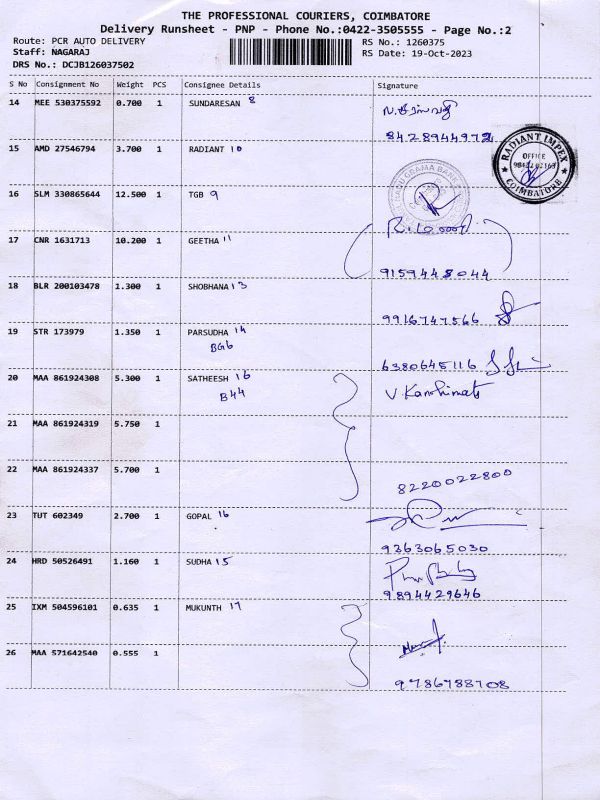 THE PROFESSIONAL COURIERS, COIMBATORE
Delivery Runsheet - PNP - Phone No.:0422-3505555 - Page No.:2
Route: PCR AUTO DELIVERY
RS No.: 1260375
Staff: NAGARAJ
RS Date: 19-Oct-2023
DRS No.: DCJB126037502
S No Consignment No Weight PCS Consignee Details Signature
14 MEE 530375592 0.700 1 SUNDARESAN 8
8428944972
15 AMD 27546794 3.700 1 RADIANT 10
RADIANT IMPEX
OFFICE
COIMBATORE
16 SLM 330865644 12.500 1 TGB 9
GRAMA BANK
17 CNR 1631713 10.200 1 GEETHA 11
9159448044
18 BLR 200103478 1.300 1 SHOBHANA 13
9916747566
19 STR 173979 1.350 1 PARSUDHA 14
BG6
6380645116
20 MAA 861924308 5.300 1 SATHEESH 16
B44
21 MAA 861924319 5.750 1
22 MAA 861924337 5.700 1
8220022800
23 TUT 602349 2.700 1 GOPAL 16
9363065030
24 HRD 50526491 1.160 1 SUDHA 15
9894429646
25 IXM 504596101 0.635 1 MUKUNTH 17
26 MAA 571642540 0.555 1
9786788708